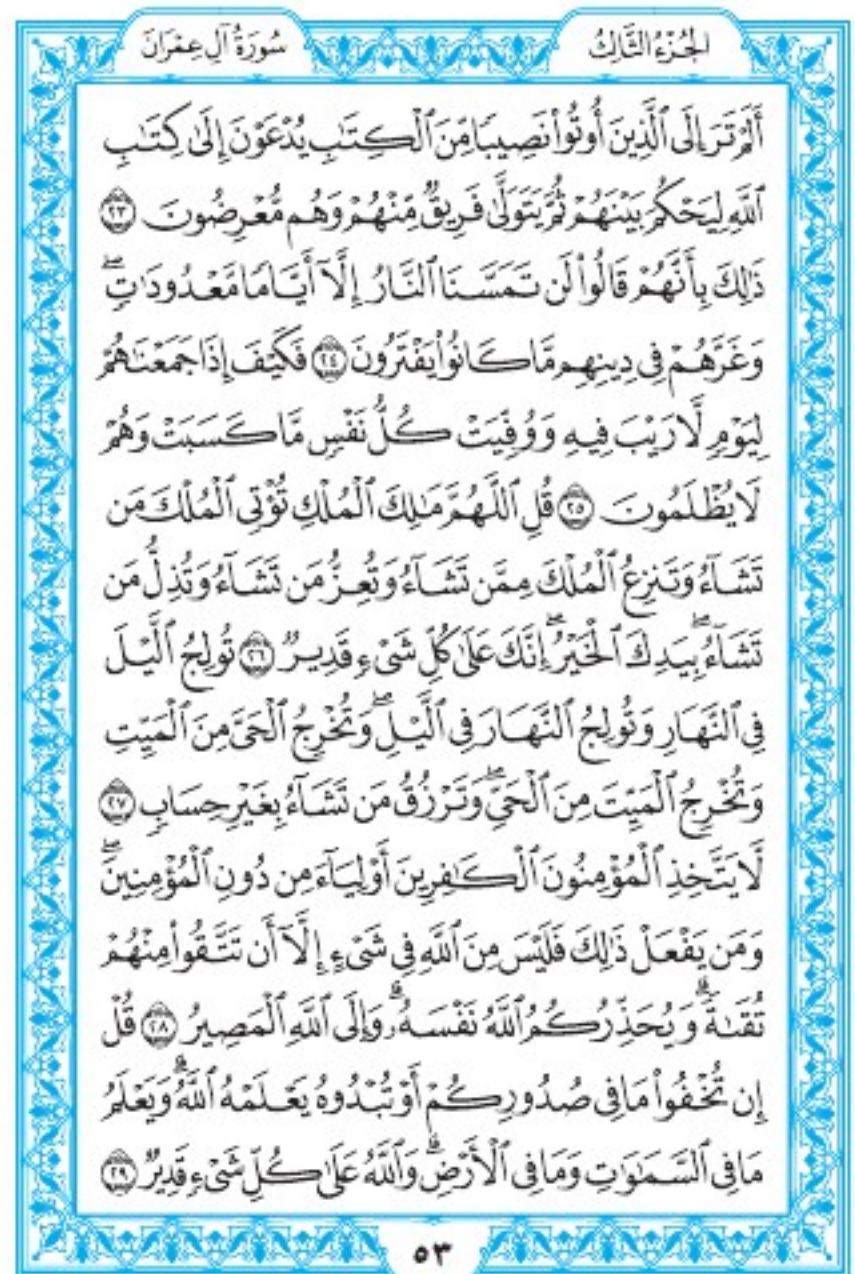 الجُزْءُ الثَّالِثُ
سُورَةُ آلِ عِمْرَانَ
أَلَمْ تَرَ إِلَى ٱلَّذِينَ أُوتُواْ نَصِيبًا مِّنَ ٱلْكِتَٰبِ يُدْعَوْنَ إِلَىٰ كِتَٰبِ
ٱللَّهِ لِيَحْكُمَ بَيْنَهُمْ ثُمَّ يَتَوَلَّىٰ فَرِيقٌ مِّنْهُمْ وَهُم مُّعْرِضُونَ ٢٣
ذَٰلِكَ بِأَنَّهُمْ قَالُواْ لَن تَمَسَّنَا ٱلنَّارُ إِلَّآ أَيَّامًا مَّعْدُودَٰتٍۖ
وَغَرَّهُمْ فِي دِينِهِم مَّا كَانُواْ يَفْتَرُونَ ٢٤ فَكَيْفَ إِذَا جَمَعْنَٰهُمْ
لِيَوْمٍ لَّا رَيْبَ فِيهِ وَوُفِّيَتْ كُلُّ نَفْسٍ مَّا كَسَبَتْ وَهُمْ
لَا يُظْلَمُونَ ٢٥ قُلِ ٱللَّهُمَّ مَٰلِكَ ٱلْمُلْكِ تُؤْتِي ٱلْمُلْكَ مَن
تَشَآءُ وَتَنزِعُ ٱلْمُلْكَ مِمَّن تَشَآءُ وَتُعِزُّ مَن تَشَآءُ وَتُذِلُّ مَن
تَشَآءُۖ بِيَدِكَ ٱلْخَيْرُۖ إِنَّكَ عَلَىٰ كُلِّ شَيْءٍ قَدِيرٌ ٢٦ تُولِجُ ٱلَّيْلَ
فِي ٱلنَّهَارِ وَتُولِجُ ٱلنَّهَارَ فِي ٱلَّيْلِۖ وَتُخْرِجُ ٱلْحَيَّ مِنَ ٱلْمَيِّتِ
وَتُخْرِجُ ٱلْمَيِّتَ مِنَ ٱلْحَيِّۖ وَتَرْزُقُ مَن تَشَآءُ بِغَيْرِ حِسَابٍ ٢٧
لَّا يَتَّخِذِ ٱلْمُؤْمِنُونَ ٱلْكَٰفِرِينَ أَوْلِيَآءَ مِن دُونِ ٱلْمُؤْمِنِينَۖ
وَمَن يَفْعَلْ ذَٰلِكَ فَلَيْسَ مِنَ ٱللَّهِ فِي شَيْءٍ إِلَّآ أَن تَتَّقُواْ مِنْهُمْ
تُقَىٰةًۗ وَيُحَذِّرُكُمُ ٱللَّهُ نَفْسَهُۥۗ وَإِلَى ٱللَّهِ ٱلْمَصِيرُ ٢٨ قُلْ
إِن تُخْفُواْ مَا فِي صُدُورِكُمْ أَوْ تُبْدُوهُ يَعْلَمْهُ ٱللَّهُۗ وَيَعْلَمُ
مَا فِي ٱلسَّمَٰوَٰتِ وَمَا فِي ٱلْأَرْضِۗ وَٱللَّهُ عَلَىٰ كُلِّ شَيْءٍ قَدِيرٌ ٢٩
٥٣